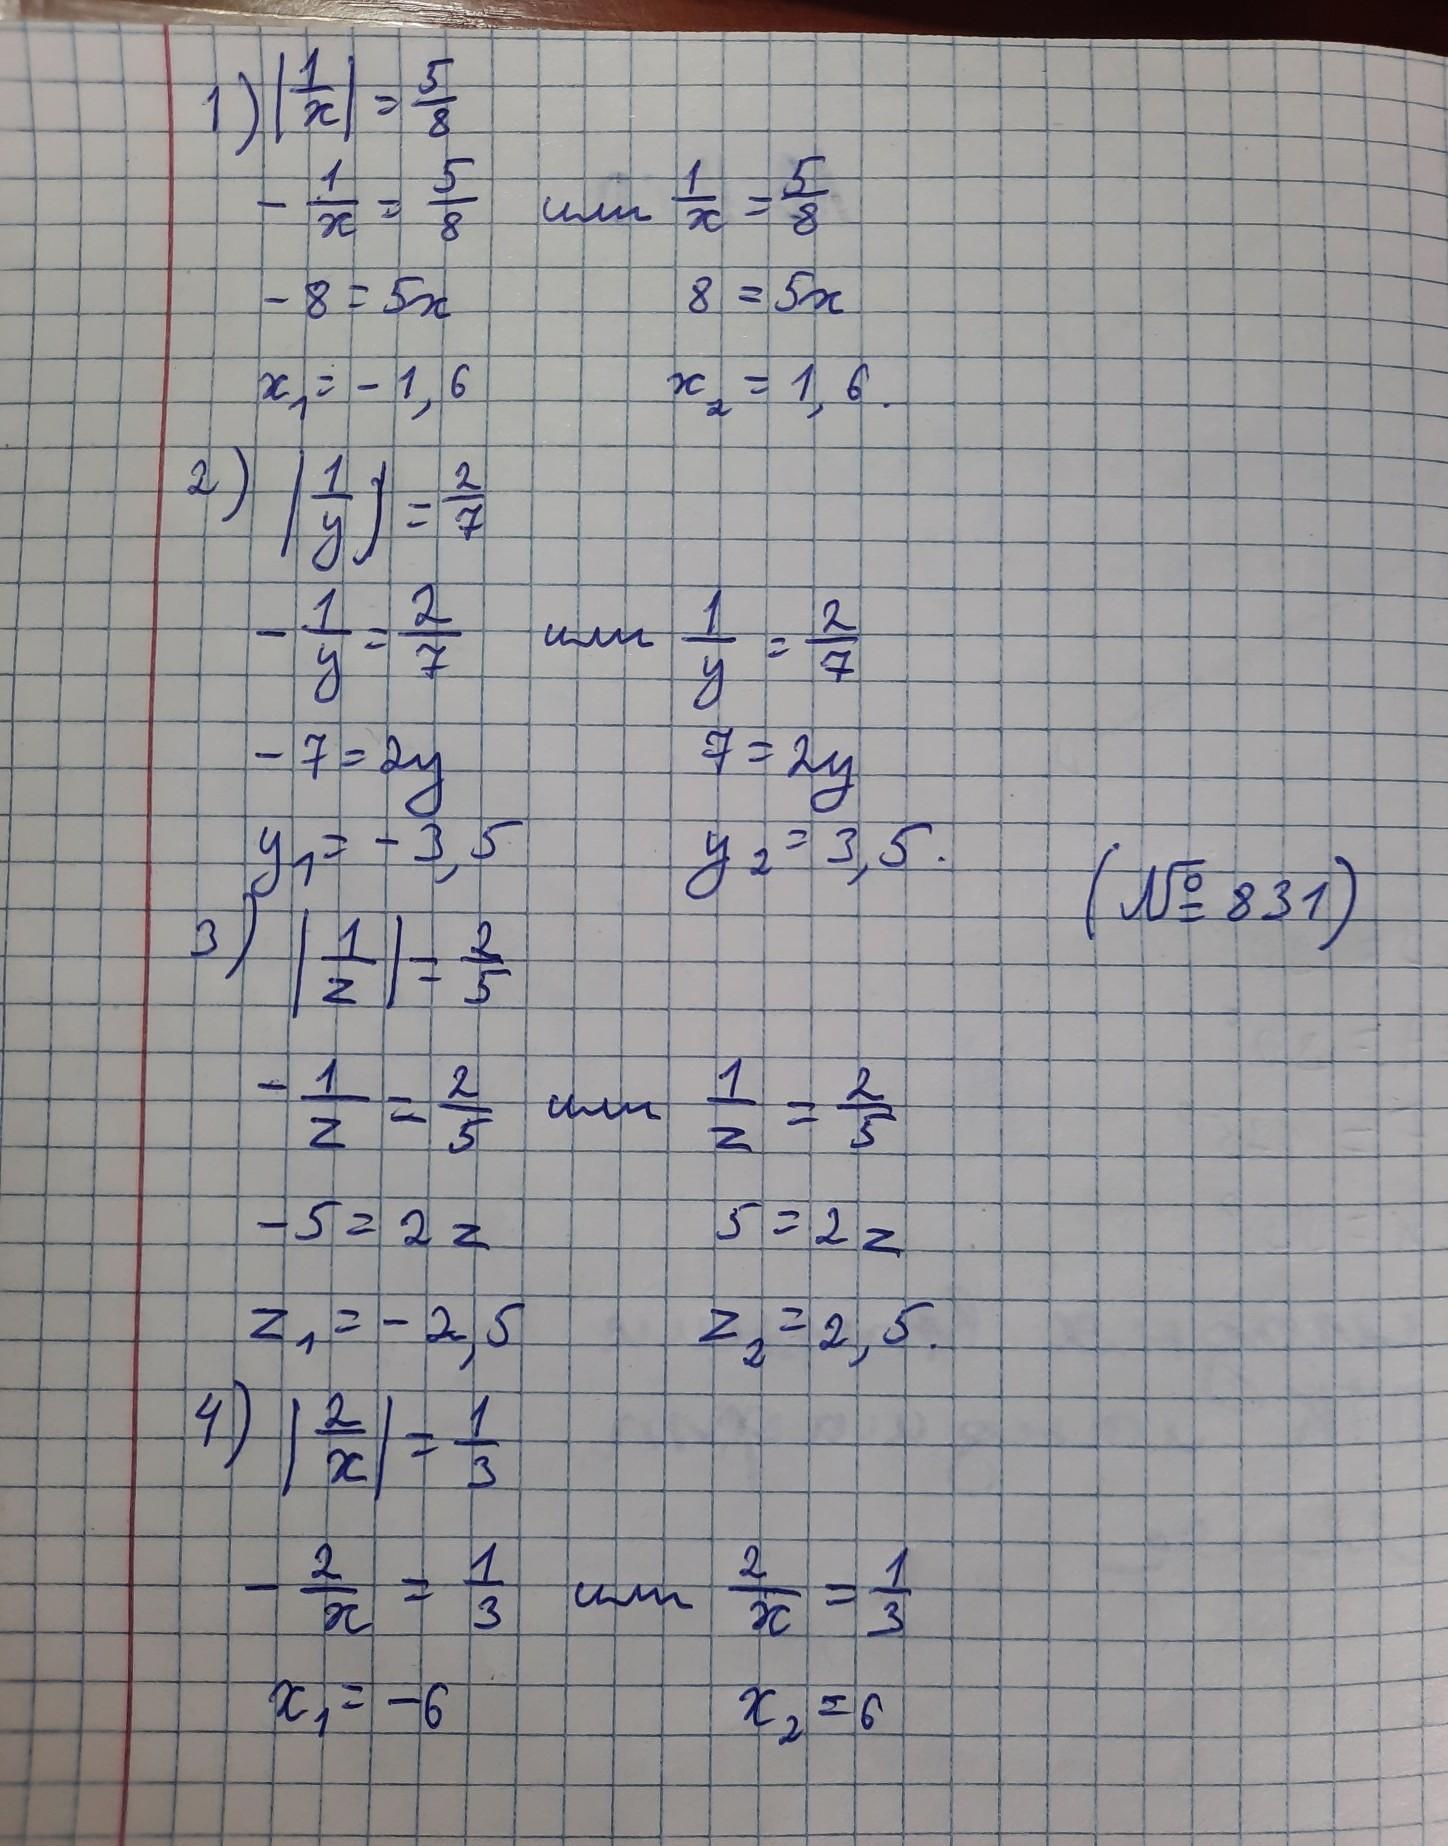 1) |1/x| = 5/8
- 1/x = 5/8 или 1/x = 5/8
- 8 = 5x 8 = 5x
x₁ = - 1,6 x₂ = 1,6.
2) |1/y| = 2/7
- 1/y = 2/7 или 1/y = 2/7
- 7 = 2y 7 = 2y
y₁ = - 3,5 y₂ = 3,5.
(№ 831)
3) |1/z| = 2/5
- 1/z = 2/5 или 1/z = 2/5
- 5 = 2z 5 = 2z
z₁ = - 2,5 z₂ = 2,5.
4) |2/x| = 1/3
- 2/x = 1/3 или 2/x = 1/3
x₁ = -6 x₂ = 6